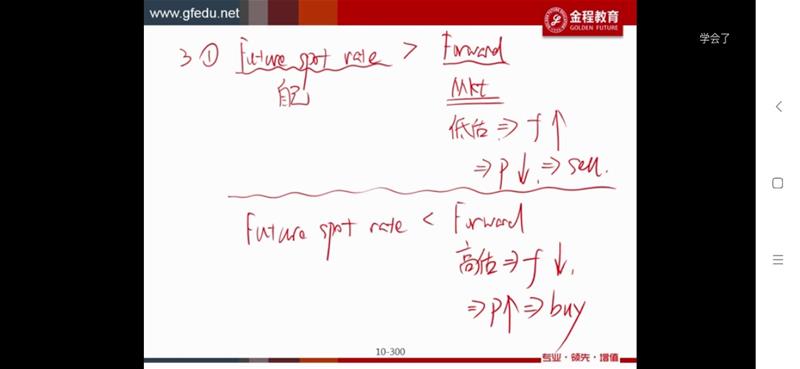 www.gfedu.net
金程教育
GOLDEN FUTURE
学会了
3 ① Future spot rate > Forward
自己
Mkt
低估 ⇒ f ↑
⇒ P ↓. ⇒ sell.
Future spot rate < Forward
高估 ⇒ f ↓.
⇒ P↑ ⇒ buy
10-300
专业·领先·增值